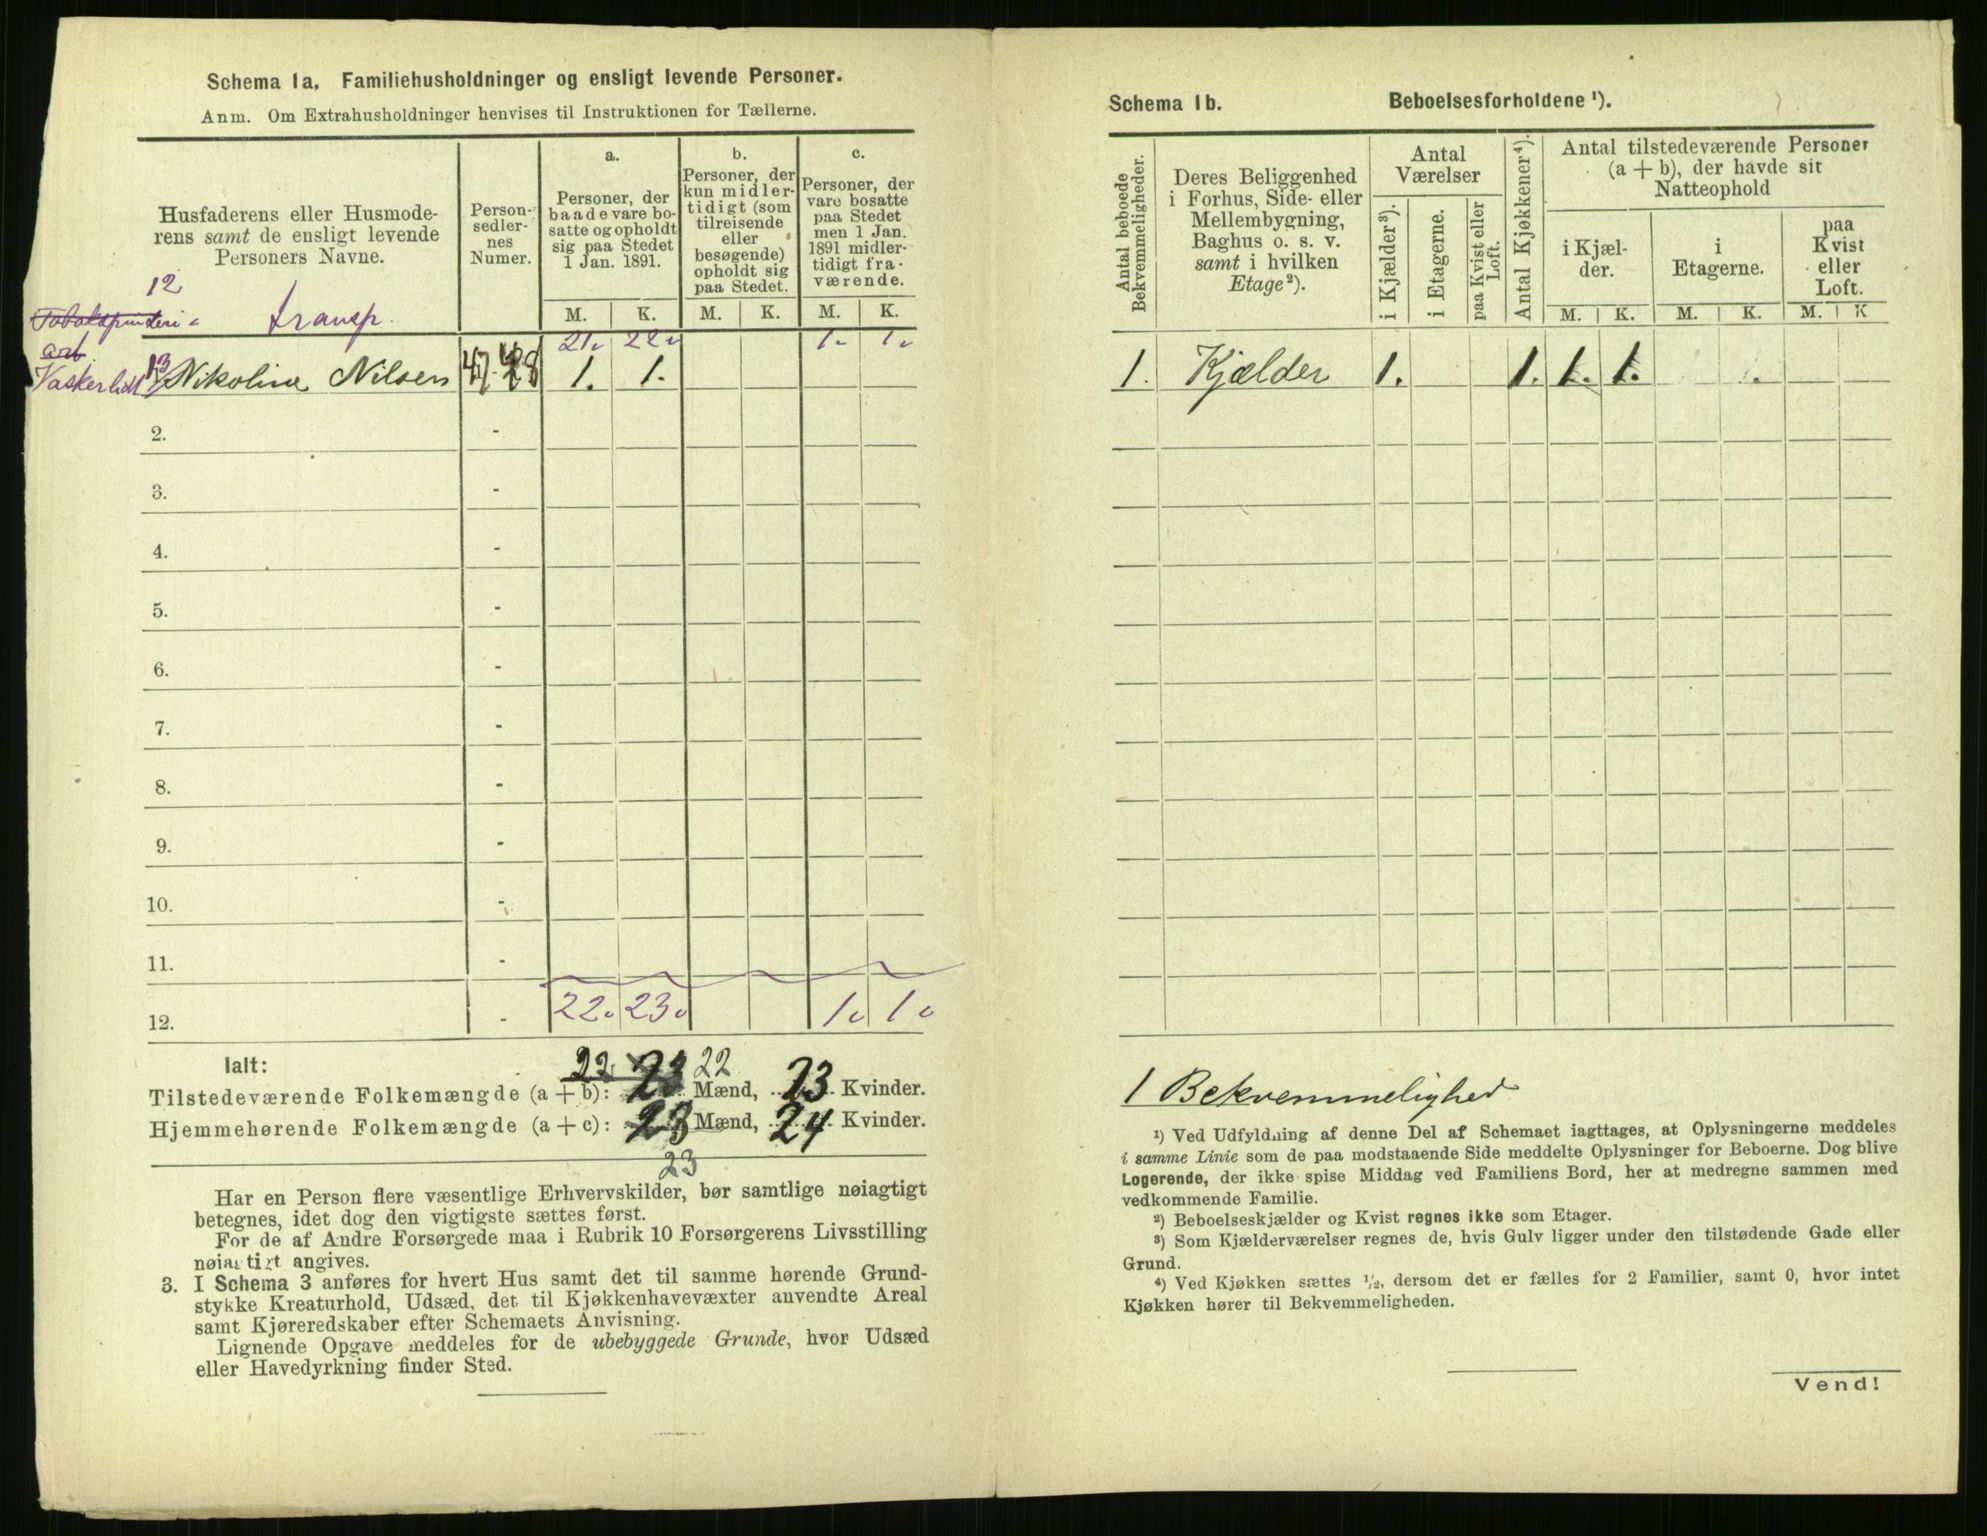 Schema 1a. Familiehusholdninger og ensligt levende Personer.
Anm. Om Extrahusholdninger henvises til Instruktionen for Tællerne.
Husfaderens eller Husmode-
rens samt de ensligt levende
Personers Navne.
Person-
sedler-
nes
Numer.
a.
Personer, der
baade vare bo-
satte og opholdt
sig paa Stedet
1 Jan. 1891.
b.
Personer, der
kun midler-
tidigt (som
tilreisende
eller
besøgende)
opholdt sig
paa Stedet.
c.
Personer, der
vare bosatte
paa Stedet
men 1 Jan.
1891 midler-
tidigt fra-
værende.
M. K. M. K. M. K.
12
Tobakspinderi-
arb.
transp.
21. 22. 1. 1.
Vaskerhdl 13 Nikoline Nilsen 47-48 1. 1.
2. -
3. -
4. -
5. -
6. -
7. -
8. -
9. -
10. -
11. -
12. - 22. 23. 1. 1.
Ialt:
22 22
Tilstedeværende Folkemængde (a + b): 23 Mænd, 23 Kvinder.
Hjemmehørende Folkemængde (a + c): 23 Mænd, 24 Kvinder.
23
Har en Person flere væsentlige Erhvervskilder, bør samtlige nøiagtigt
betegnes, idet dog den vigtigste sættes først.
For de af Andre Forsørgede maa i Rubrik 10 Forsørgerens Livsstilling
nøiagtigt angives.
3. I Schema 3 anføres for hvert Hus samt det til samme hørende Grund-
stykke Kreaturhold, Udsæd, det til Kjøkkenhavevæxter anvendte Areal
samt Kjøreredskaber efter Schemaets Anvisning.
Lignende Opgave meddeles for de ubebyggede Grunde, hvor Udsæd
eller Havedyrkning finder Sted.
Schema 1b. Beboelsesforholdene ¹).
Antal beboede
Bekvemmeligheder.
Deres Beliggenhed
i Forhus, Side- eller
Mellembygning,
Baghus o. s. v.
samt i hvilken
Etage²).
Antal
Værelser
i Kjælder³).
i Etagerne.
paa Kvist eller
Loft.
Antal Kjøkkener⁴).
Antal tilstedeværende Personer
(a + b), der havde sit
Natteophold
i Kjæl-
der.
i
Etagerne.
paa
Kvist
eller
Loft.
M. K. M. K. M. K
1. Kjælder 1. 1. 1. 1.
1 Bekvemmelighed
¹) Ved Udfyldning af denne Del af Schemaet iagttages, at Oplysningerne meddeles
i samme Linie som de paa modstaaende Side meddelte Oplysninger for Beboerne. Dog blive
Logerende, der ikke spise Middag ved Familiens Bord, her at medregne sammen med
vedkommende Familie.
²) Beboelseskjælder og Kvist regnes ikke som Etager.
³) Som Kjælderværelser regnes de, hvis Gulv ligger under den tilstødende Gade eller
Grund.
⁴) Ved Kjøkken sættes ¹/₂, dersom det er fælles for 2 Familier, samt 0, hvor intet
Kjøkken hører til Bekvemmeligheden.
Vend!